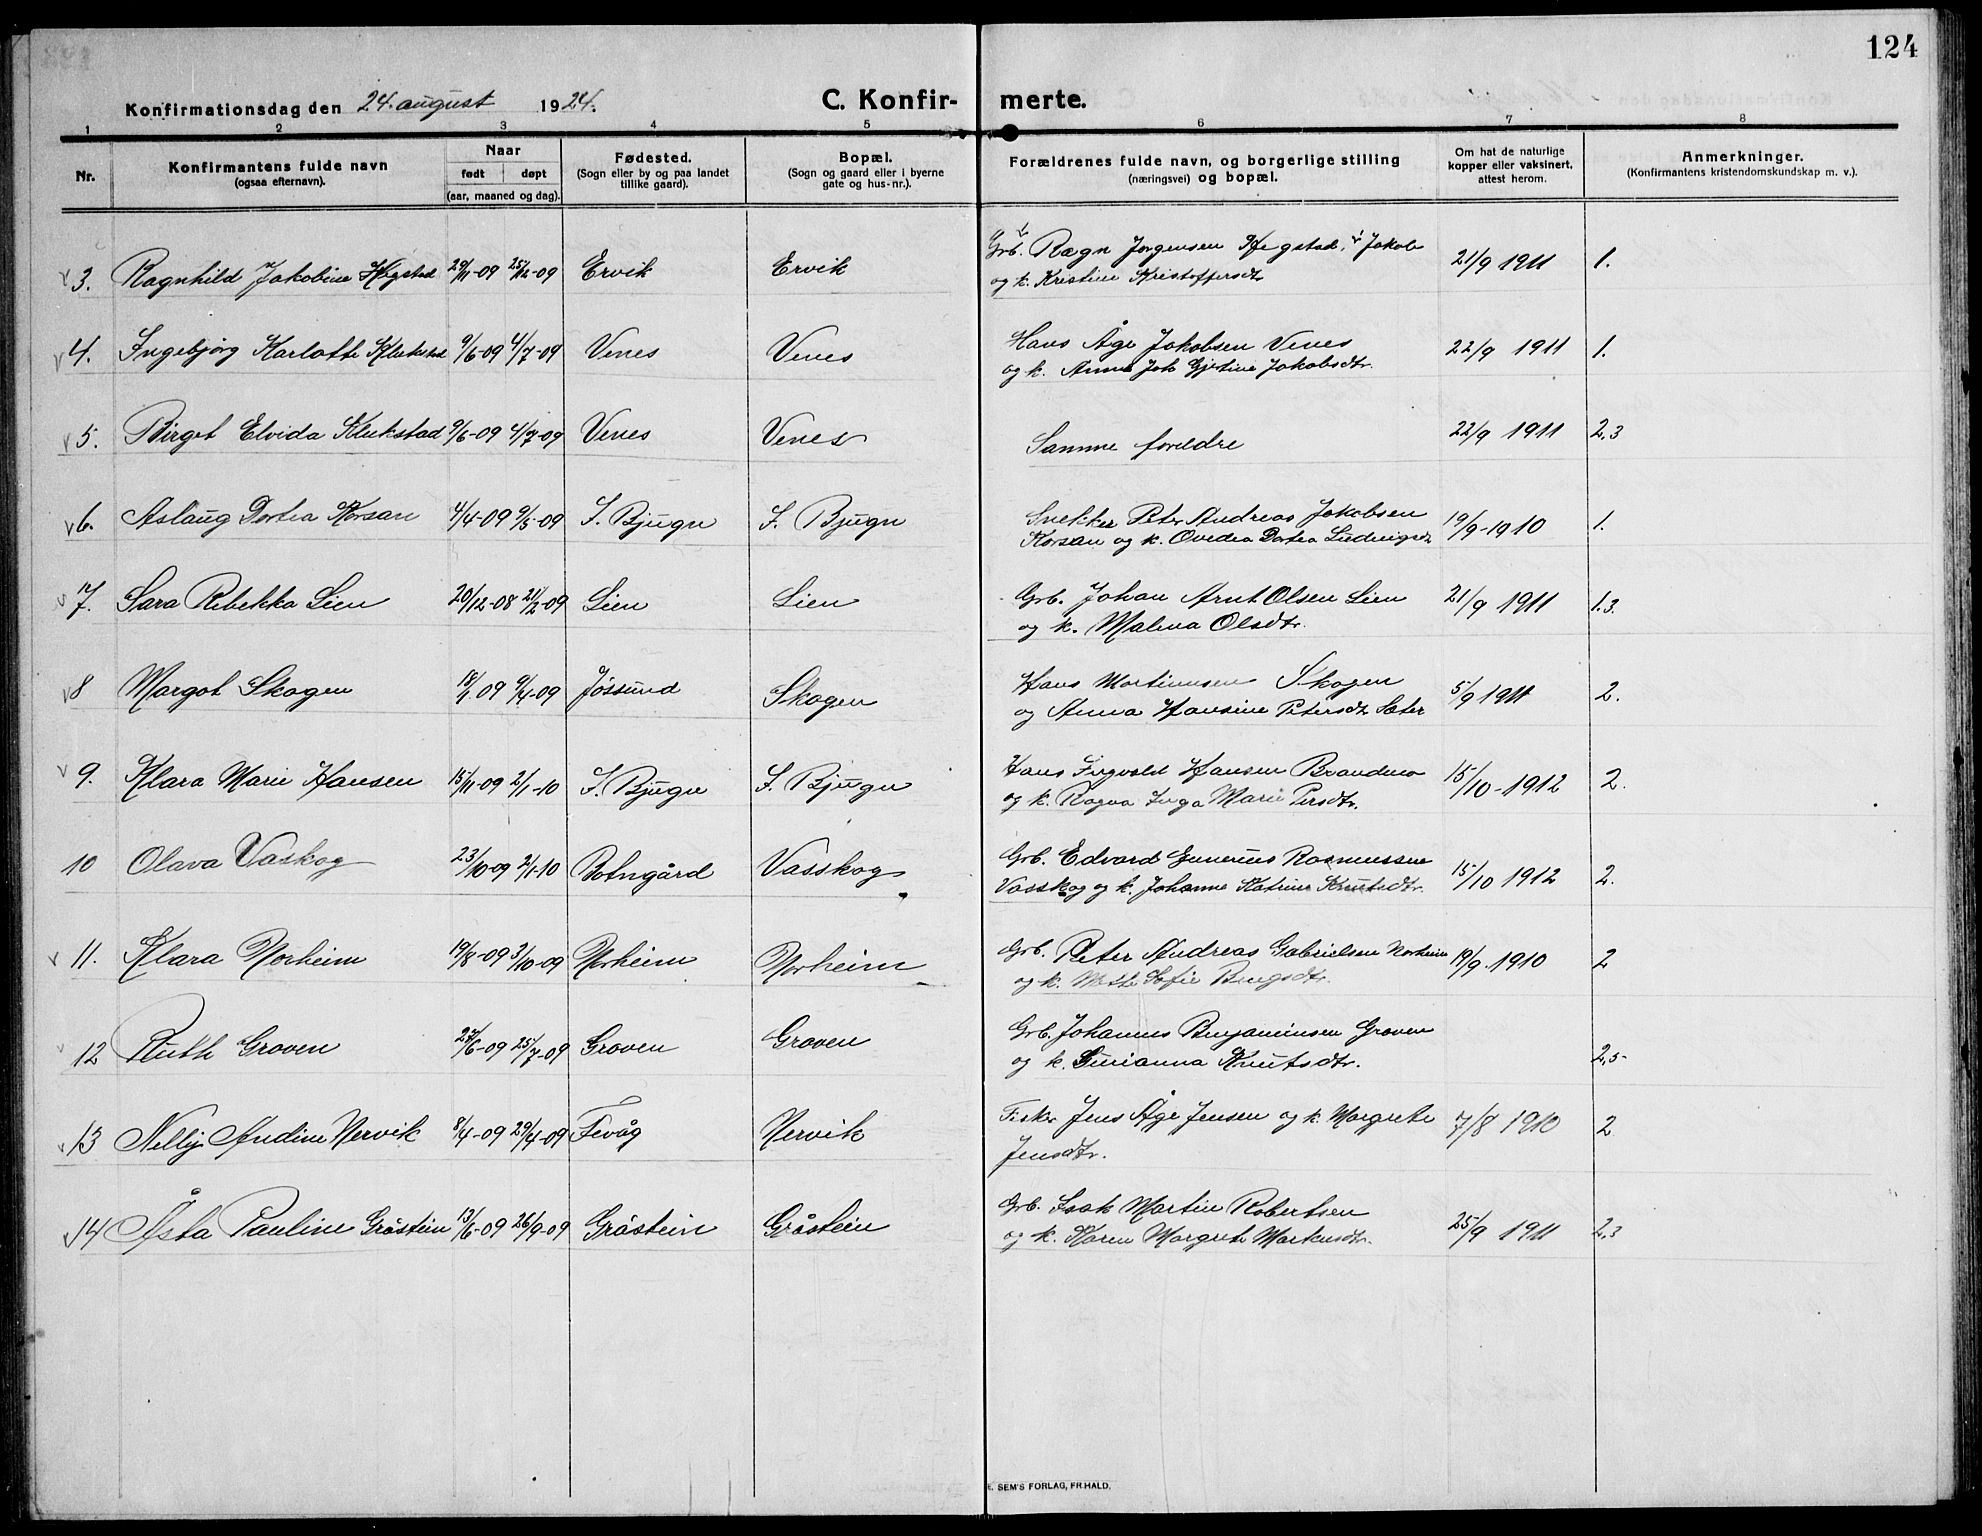 124
Konfirmationsdag den 24. august 1924. C. Konfir- merte.
1 2 3 4 5 6 7 8
Nr. Konfirmantens fulde navn (ogsaa efternavn). Naar født døpt (aar, maaned og dag). Fødested. (Sogn eller by og paa landet tillike gaard). Bopæl. (Sogn og gaard eller i byerne gate og hus-nr.). Forældrenes fulde navn, og borgerlige stilling (næringsvei) og bopæl. Om hat de naturlige kopper eller vaksinert, attest herom. Anmerkninger. (Konfirmantens kristendomskundskap m. v.).
3. Ragnhild Jakobine Hegstad 29/11-09 25/12-09 Ervik Ervik Grb. Rægn Jørgensen Hegstad, Jakob 21/9 1911 1.
og k. Kristine Kristoffersdtr
4. Ingebjørg Karlotte Klukstad 9/6-09 4/7-09 Venes Venes Hans Åge Jakobsen Venes 22/9 1911 1.
og k. Anna Joh Gjertine Jakobsdtr.
5. Birget Elvida Klukstad 9/6-09 4/7-09 Venes Venes Samme foreldre 22/9 1911 2,3
6. Aslaug Dortea Korsan 4/4-09 9/5-09 S. Bjugn S. Bjugn Snekker Peter Andreas Jakobsen 19/9-1910 1.
Korsan og k. Ovedia Dortea Ludvigsdtr
7. Sara Rebekka Lien 20/12-08 21/2-09 Lien Lien Grb. Johan Arnt Olsen Lien 21/9 1911 1.3.
og k. Malena Olsdtr.
8 Margot Skogen 18/1.09 9/4-09 Jøssund Skogen Hans Martinusen Skogen 5/9 1911 2.
og Anna Hansine Petersdtr Sæter
9. Klara Marie Hansen 15/11-09 2/1-10 S. Bjugn S. Bjugn Hans Ingvald Hansen Brandmo 15/10-1912 2.
og k. Ragna Inga Marie Persdtr.
10 Olava Vaskog 23/10-09 2/1-10 Botngård Vasskog Grb. Edvard Gunerius Rasmussen 15/10 1912 2.
Vasskog og k. Johanne Katrine Knutsdtr.
11. Klara Norheim 19/8-09 3/10-09 Norheim Norheim Grb. Peter Andreas Gabrielsen Norheim 19/9.1910 2
og k. Mette Sofie Bengsdtr.
12 Ruth Groven 27/6-09 25/7-09 Groven Groven Grb. Johannes Benjaminsen Groven 2,5-
og k. Gurianna Knutsdtr.
13 Nelly Andine Nervik 8/4-09 29/4-09 Fevåg Nervik Fisker Jens Åge Jensen og k. Margrete 7/8 1910 2
Jensdtr.
14 Åsta Pauline Gråstein 13/6-09 26/9-09 Gråstein Gråstein Grb. Isak Martin Robertsen 25/9 1911 2,3
og k. Karen Margrete Markusdtr.
E. SEM'S FORLAG, FR.HALD.